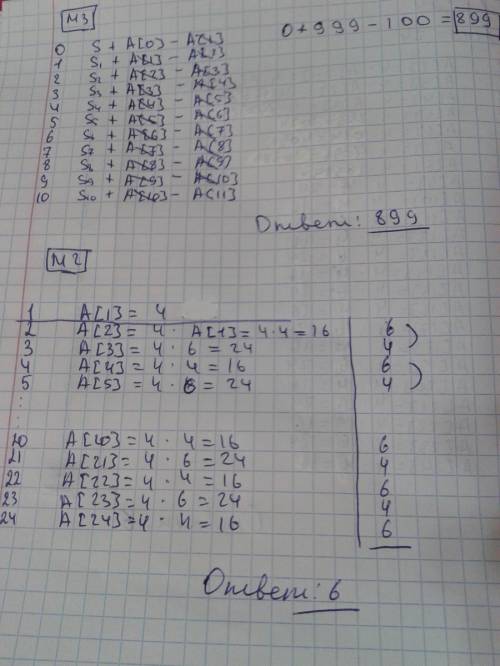 М3
0+999-100=899
0 S + A[0] - A[1]
1 S1 + A[1] - A[2]
2 S2 + A[2] - A[3]
3 S3 + A[3] - A[4]
4 S4 + A[4] - A[5]
5 S5 + A[5] - A[6]
6 S6 + A[6] - A[7]
7 S7 + A[7] - A[8]
8 S8 + A[8] - A[9]
9 S9 + A[9] - A[10]
10 S10 + A[10] - A[11]
Ответ: 899
М2
1 A[1] = 4
2 A[2] = 4 · A[1] = 4·4 = 16 6
3 A[3] = 4 · 6 = 24 4
4 A[4] = 4 · 4 = 16 6
5 A[5] = 4 · 6 = 24 4
20 A[20] = 4 · 4 = 16 6
21 A[21] = 4 · 6 = 24 4
22 A[22] = 4 · 4 = 16 6
23 A[23] = 4 · 6 = 24 4
24 A[24] = 4 · 4 = 16 6
Ответ: 6